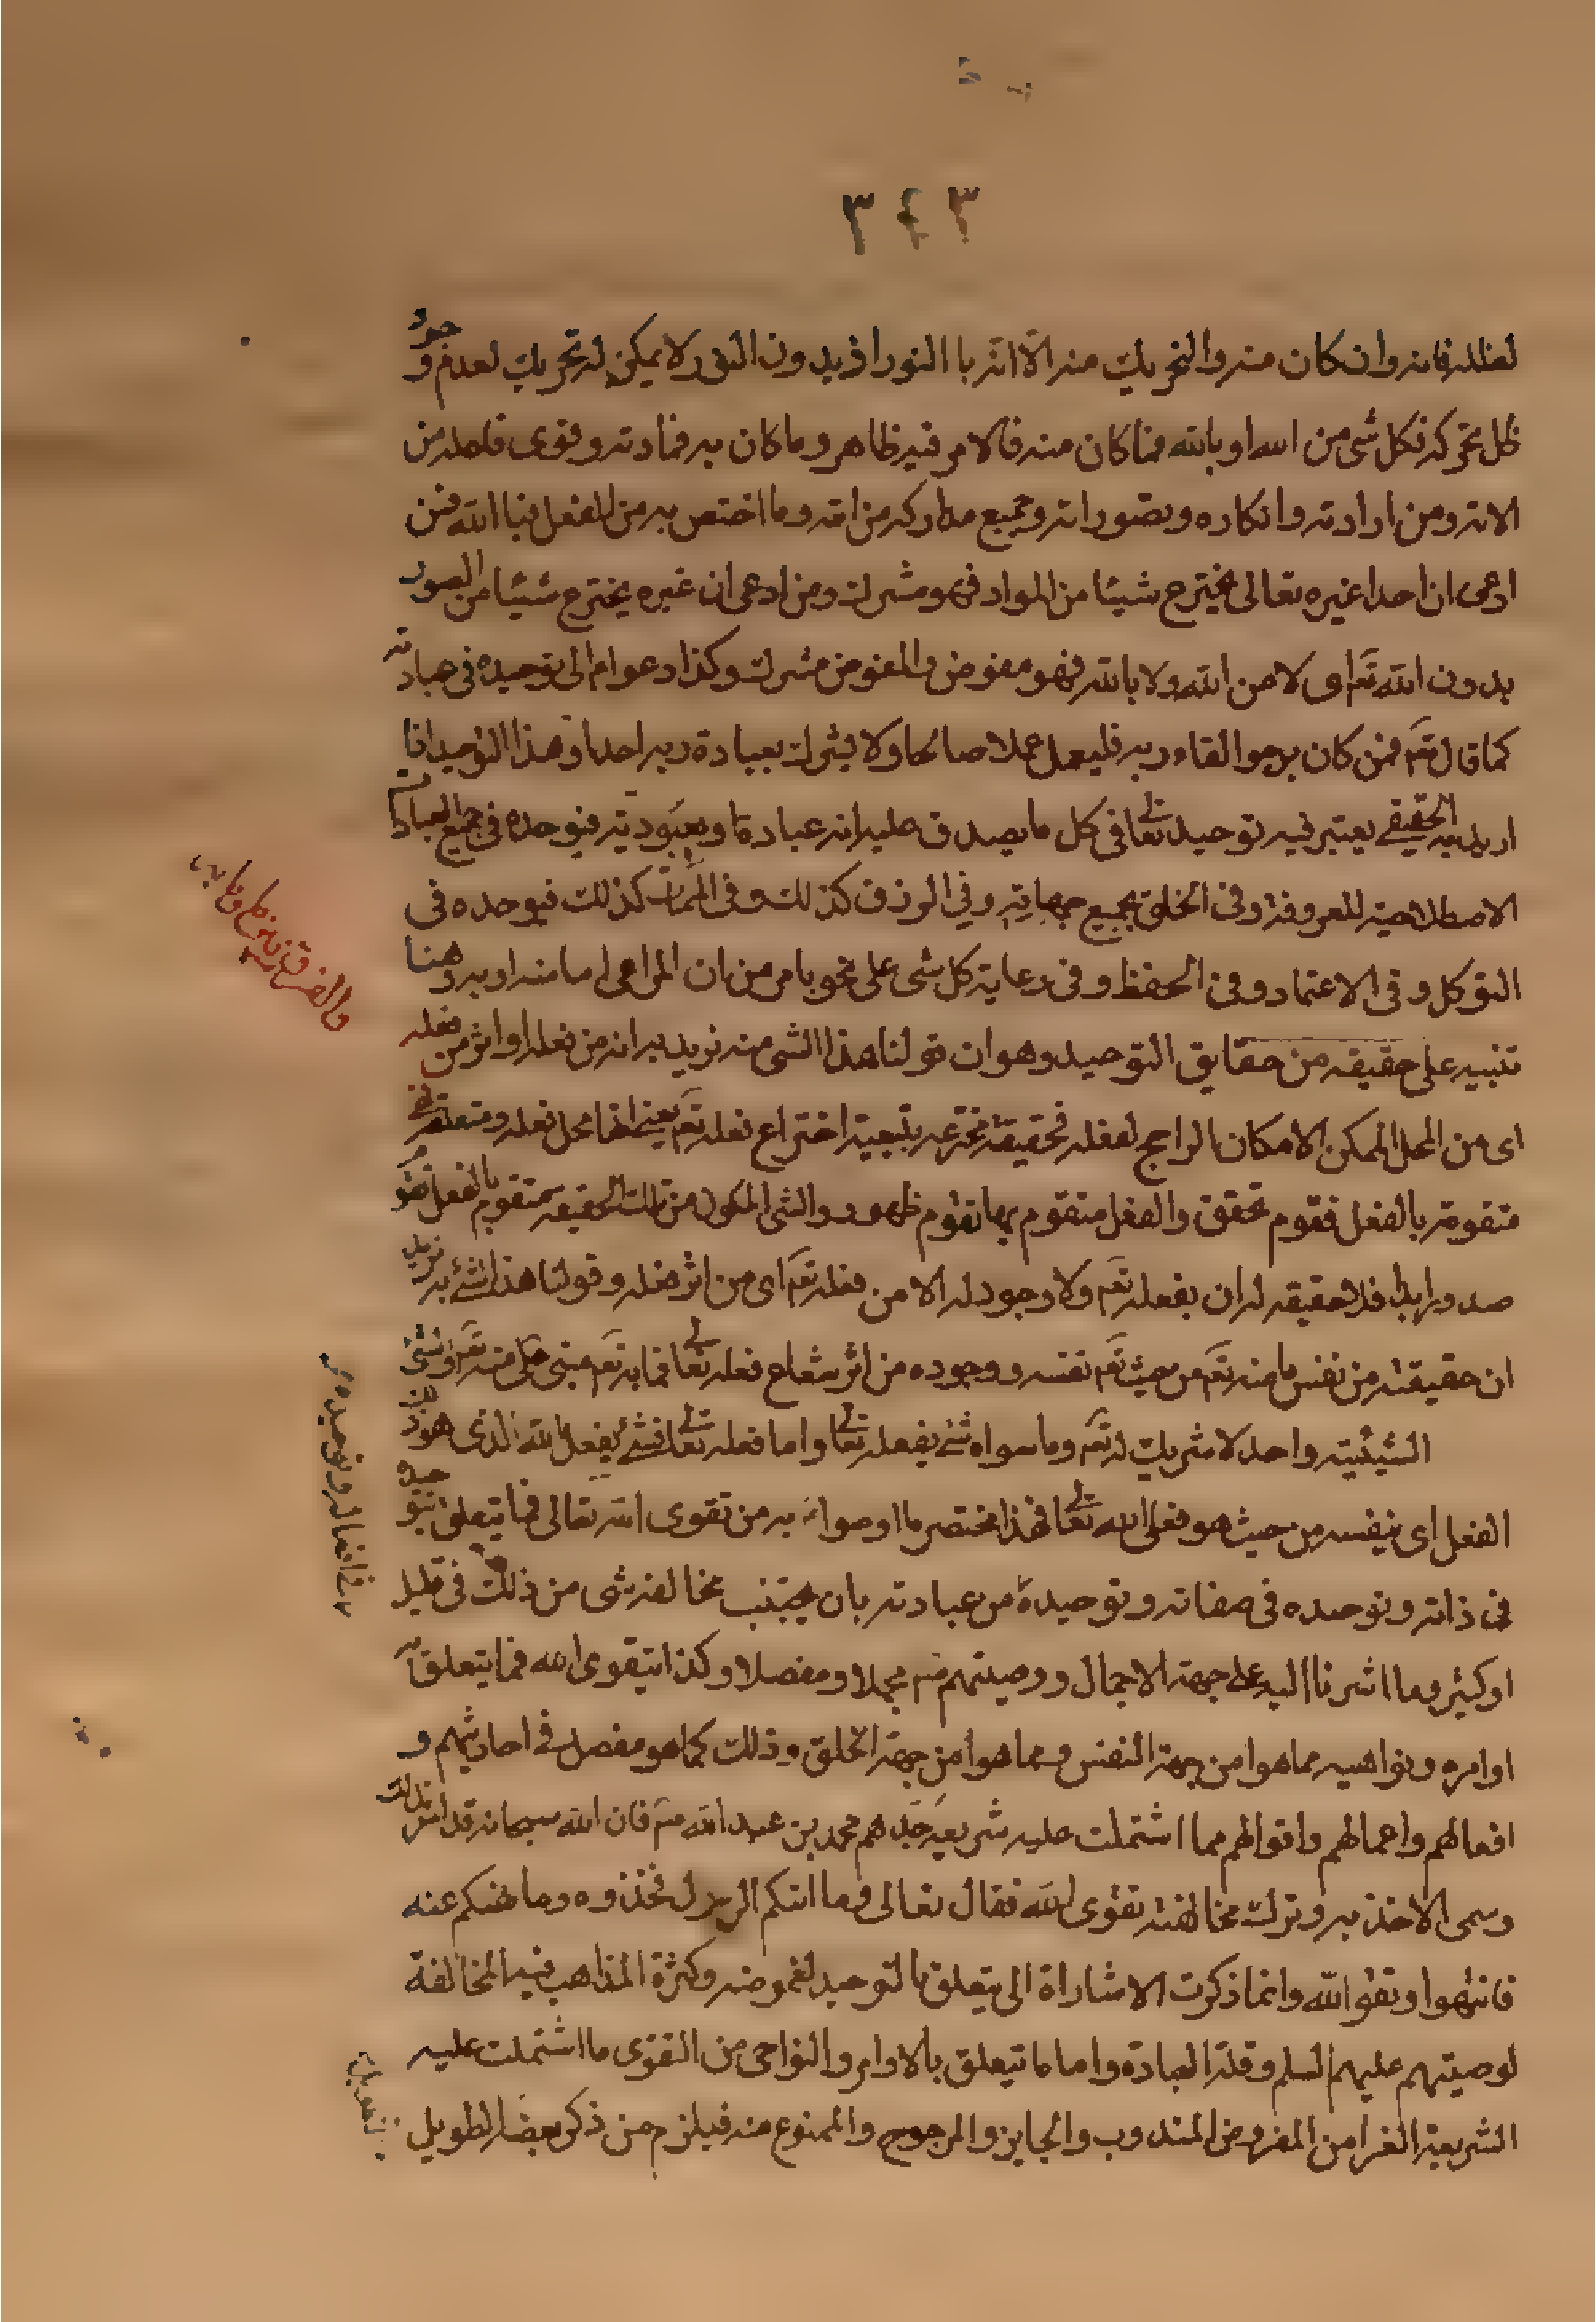 ٣٤٣
لظله فانه وان كان منه والتحريك منه الّا انّه باالنور اذ بدون النور لا يمكن له تحريك لعدم وجود
ظل يحركه فكل شئ من الله او بالله فما كان منه فالامر فيه ظاهر وما كان به فمادته وقوى فاعله من
الاته ومن ارادته وانكاره وتصوراته وجميع مداركه من الله وما اختص به من الفعل فباالله فمن
ادعى ان احدا غيره تعالى يخترع شيئا من المواد فهو مشرك ومن ادعى ان غيره يخترع شيئا من الصور
بدون الله تعم اى لا من الله ولا بالله فهو مفوض والمفوض مشرك وكذا دعوا الى توحيده فى عبادته
كما قال تعم فمن كان يرجوا لقاء ربه فليعمل عملا صالحا ولا يشرك بعبادة ربه احدا وهذا التوحيد اذا
اريد به الحقيقى يعتبر فيه توحيد تعالى فى كل ما يصدق عليه انه عبادة وعبودية فيوحده فى جميع العبادات
الاصطلاحية المعروفة وفى الخلق بجميع جهاته وفى الرزق كذلك وفى الممات كذلك فيوحده فى
التوكل وفى الاعتماد وفى الحفظ وفى رعاية كل شئ على نحو ما مر من ان المراعى اما منه او به وهنا
تنبيه على حقيقه من حقايق التوحيد وهو ان قولنا هذا الشئ منه نريد به انه من فعله او اثر من فعله
اى من المحل الممكن الامكان الراجح لفعله فحقيقة مخترعه بتبعية اختراع فعله تعم يعنى انها محل فعله ومتعلقه فهى
متقومة بالفعل فقوم تحقق والفعل متقوم بها تقوم ظهور والشئ المكون من تلك الحقيقه متقوم بالفعل تقوم
صدور ابدا فلا حقيقه له ان بفعله تعم ولا وجود له الا من فعله تعم اى من اثر فعله وقولنا هذا الشئ به نريد
ان حقيقته من نفس ما منه تعم من حيث تعم نفسه ووجوده من اثر شعاع فعله تعالى فما به تعم مبنى على منه تعم وشئ
الشيئية واحد لا شريك له تعم وما سواه شئ بفعله تعالى واما فعله تعالى فشئ بفعل الله الذى هو ذلك
الفعل اى بنفسه من حيث هو فعل الله تعالى فهذا مختصر ما اوصوا به من تقوى الله تعالى فيما يتعلق بتوحيده
فى ذاته وتوحده فى صفاته وتوحيده من عبادته بان يجتنب مخالفة شئ من ذلك فى قليل
او كثير وما اشرنا اليه على جهة الاجمال ووصيتهم مجملا ومفصلا وكذا بتقوى الله فيما يتعلق
اوامره ونواهيه مما هو من جهة النفس ومما هو من جهة الخلق وذلك كما هو مفصل فى احاديثهم و
افعالهم واعمالهم واقوالهم مما اشتملت عليه شريعة جدهم محمد بن عبدالله ص فان الله سبحانه قد امر بذلك
وسمى الاخذ به وترك مخالفته تقوى الله فقال تعالى وما اتيكم الرسول فخذوه وما نهيكم عنه
فانتهوا وتقوا الله وانما ذكرت الاشاراة الى يتعلق بالتوحيد لغموضه وكثرة المذاهب فيه المخالفة
لوصيتهم عليهم السلم وقلة العبادة واما ما يتعلق بالاوامر والنواحى من التقوى ما اشتملت عليه
الشريعة الغرا من المفروض المندوب والجايز والمرجوح والممنوع منه فيلزم من ذكر بعضا لطويل
والفرق بين منه وما به
فى افعاله وتوحيده